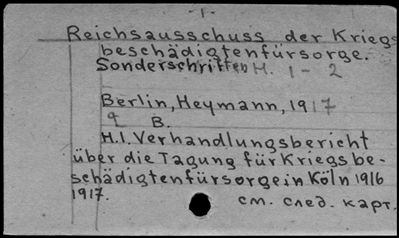 -1-
Reichsausschuss der Kriegs
beschädigtenfürsorge.
Sonderschriften H. 1-2
Berlin, Heymann, 1917
9 B.
H.1. Verhandlungsbericht
über die Tagung für Kriegsbe-
schädigtenfürsorge in Köln 1916
1917.
см. след. карт.